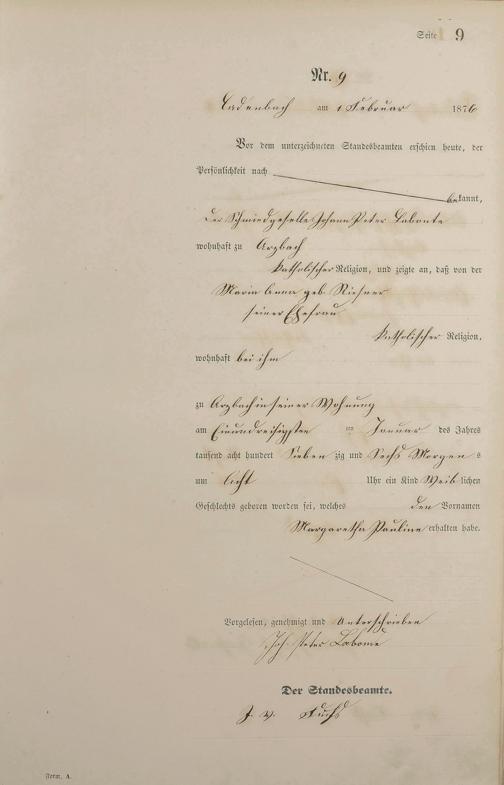 Seite 9
Nr. 9
Cadenbach am 1 Februar 1876
Vor dem unterzeichneten Standesbeamten erschien heute, der
Persönlichkeit nach
bekannt,
der Schmiedgeselle Johann Peter Labonte
wohnhaft zu Arzbach
katholischer Religion, und zeigte an, daß von der
Maria Anna geb.
seiner Ehefrau
katholischer Religion,
wohnhaft bei ihm
zu Arzbach in seiner Wohnung
am Einundreißigsten ten Januar des Jahres
tausend acht hundert Sieben zig und Sechs Morgen s
um Acht Uhr ein Kind Weib lichen
Geschlechts geboren worden sei, welches den Vornamen
Margaretha Pauline erhalten habe.
Vorgelesen, genehmigt und Unterschrieben
Joh. Peter
Der Standesbeamte.
J. V. Fuchs
Form. A.